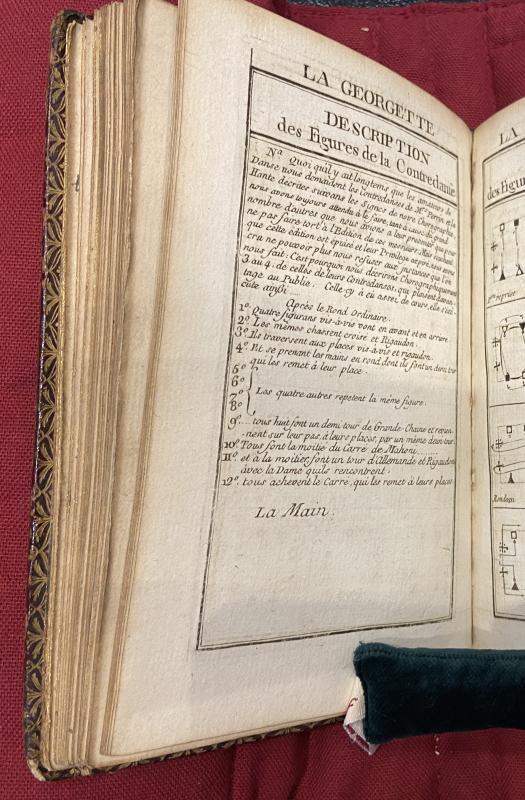 LA GEORGETTE
DESCRIPTION
des Figures de la Contredanse
Na Quoi qu'il y ait longtems que les amateurs de la
Danse nous demandent les Contredanses de Mrs Perrin et la
Hante décrites suivans les Signes de notre Choregraphie,
nous avons toujours attendu à le faire, tant à cause du grand
nombre d'autres que nous avions à leur presenter que pour
ne pas faire tort à l'Edition de ces messieurs. Mais sachant
que cette édition est épuisée et leur Privilege expiré, nous avons
cru ne pouvoir plus nous refuser aux instances que l'on
nous fait. C'est pourquoi nous décrirons Choregraphiquement
3. au 4. de celles de leurs Contredanses, qui plaisent davan-
tage au Publie. Celle cy à eu assez de cours, elle s'exé-
cute ainsi
Après le Rond Ordinaire.
1o Quatre figurans vis-à-vis vont en avant et en arriere
2o Les mêmes chassent croisé et Rigaudon.
3o Ils traversent aux places vis-à-vis et rigaudon.
4o Et se prenant les mains en rond dont ils font un demi tour
qui les remet à leur place.
5o
6o
7o Les quatre autres repetent la même figure.
8o
9o tous huit font un demi tour de Grande Chaine et revien-
nent sur leur pas, à leurs places, par un même demi-tour.
10o Tous font la moitié du Carré de Mahoni
11o et à la moitier, font un tour d'Allemande et Rigaudon
avec la Dame qu'ils rencontrent.
12o tous achevent le Carré, qui les remet à leurs places
La Main.
LA
des Figu
1re reprise
Rondeau